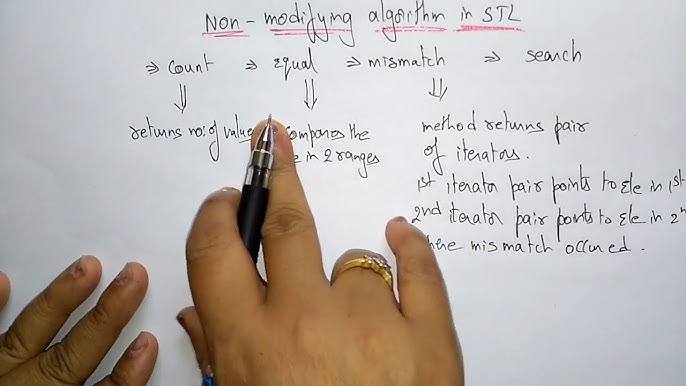 Non - modifying algorithm in STL
⇒ count ⇒ equal ⇒ mismatch ⇒ search
returns no: of value compares the
in 2 ranges
method returns pair
of iterators.
1st iterator pair points to Ele in 1st
2nd iterator pair points to Ele in 2n
mismatch occured.